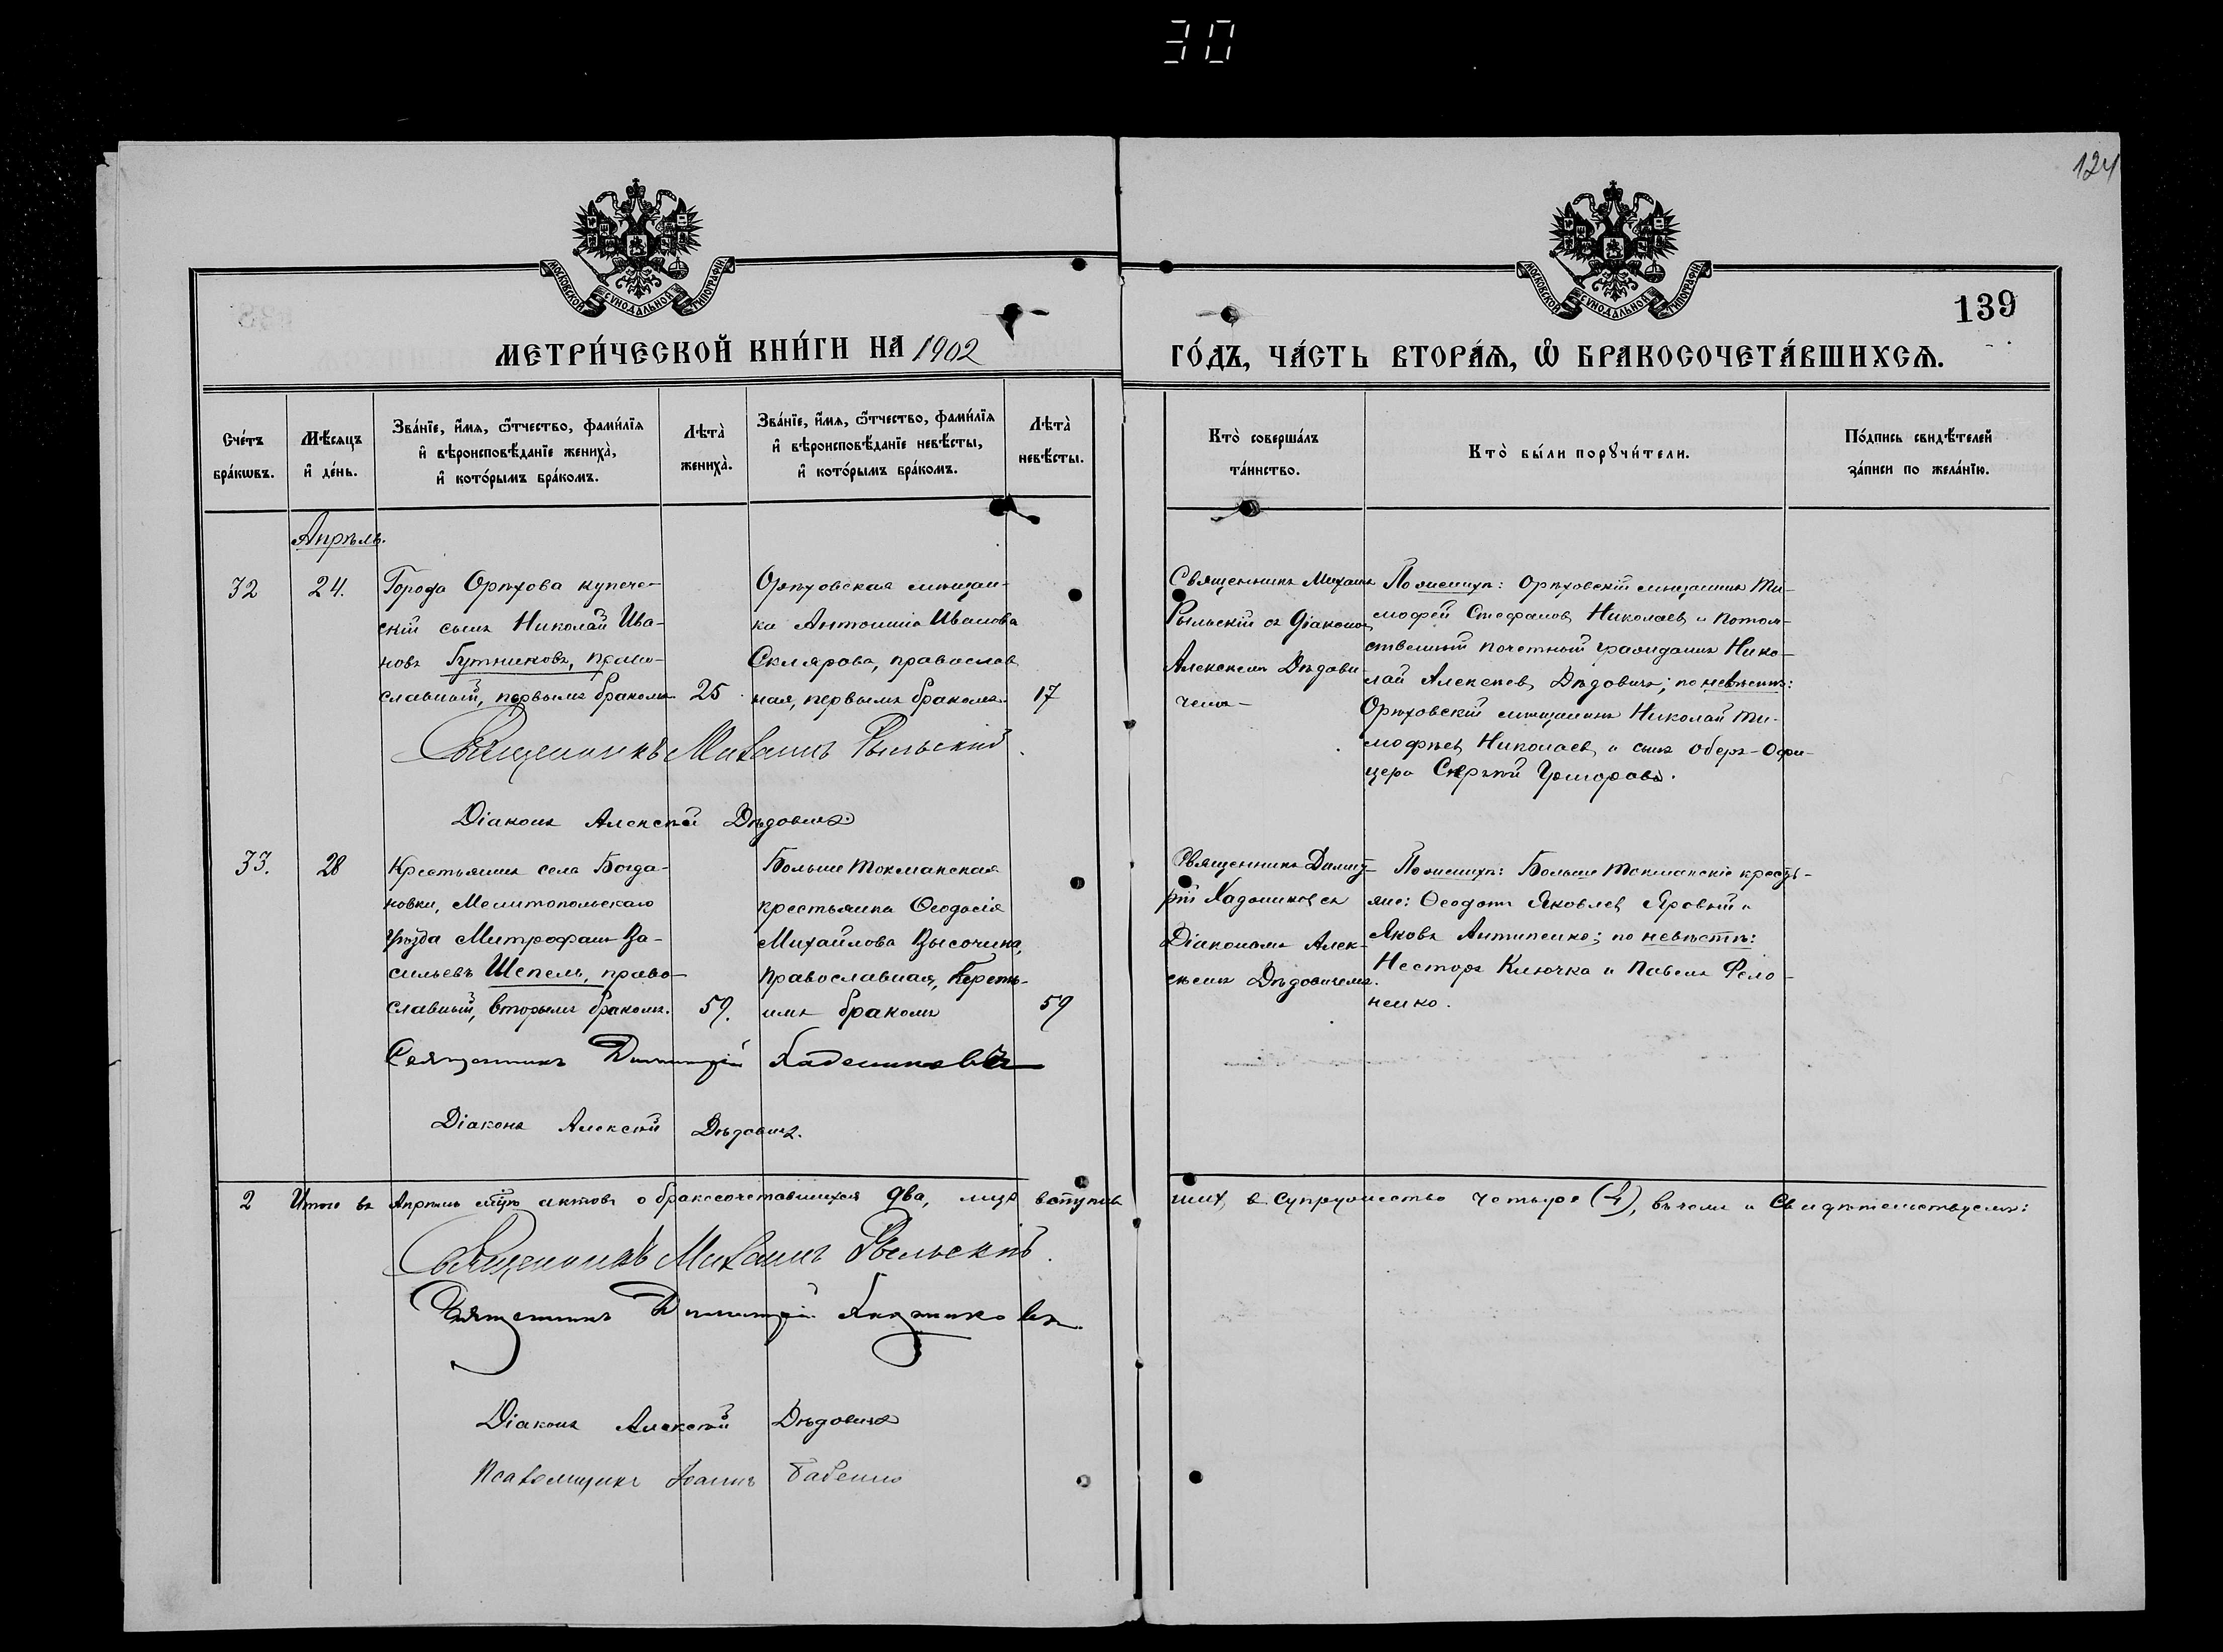 30
124
МОСКОВСКОЙ СѴНОДАЛЬНОЙ ТИПОГРАФІИ
МОСКОВСКОЙ СѴНОДАЛЬНОЙ ТИПОГРАФІИ
139
МЕТРИ́ЧЕСКОЙ КНИ́ГИ НА 1902
ГО́ДЪ, ЧА́СТЬ ВТОРА́Ѧ, Ѽ БРАКОСОЧЕТА́ВШИХСѦ.
Сче́тъ
бра́кѡвъ.
Мѣ́сяцъ
и҆ де́нь.
Зва́нїе, и҆́мѧ, ѻ҆́тчество, фами́лїѧ
и҆ вѣроисповѣ́данїе жениха̀,
и҆ кото́рымъ бра́комъ.
Лѣта̀
жениха̀.
Зва́нїе, и҆́мѧ, ѻ҆́тчество, фами́лїѧ
и҆ вѣроисповѣ́данїе невѣ́сты,
и҆ кото́рымъ бра́комъ.
Лѣта̀
невѣ́сты.
Кто̀ соверша́лъ
та́инство.
Кто̀ бы́ли порꙋчи́тели.
По́дпись свидѣ́телей
за́писи по жела́нїю.
Апрѣль.
32
24.
Города Орѣхова купече-
скій сынъ Николай Ива-
новъ Бутниковъ, право-
славный, первымъ бракомъ
25
Орѣховская мѣщан-
ка Антонина Иванова
Склярова, православ
ная, первымъ бракомъ.
17
Священникъ Михаилъ
Рыльскій съ діакономъ
Алексѣемъ Дѣдови-
чемъ
По женихѣ: Орѣховскій мѣщанинъ Ти-
мофей Стефановъ Николаевъ и потом-
ственный почетный гражданинъ Нико-
лай Алексѣевъ Дѣдовичъ; по невѣстѣ:
Орѣховскій мѣщанинъ Николай Ти-
мофѣевъ Николаевъ и сынъ оберъ-офи-
цера Сергѣй
Священникъ Михаилъ Рыльскій
Діаконъ Алексѣй Дѣдовичъ.
33.
28
Крестьянинъ села Богда-
новки, Мелитопольскаго
уѣзда Митрофанъ Ва-
сильевъ Шепель, право-
славный, вторымъ бракомъ.
59.
Больше Токмакская
крестьянка Ѳеодосія
Михайлова Высочина,
православная, треть-
имъ бракомъ
59
Священникъ Димит-
рій Хаджиновъ съ
Діакономъ Алек-
сѣемъ Дѣдовичемъ.
По женихѣ: Больше Токмакскіе кресть-
яне: Ѳеодотъ Яковлевъ Яровый и
Яковъ Антипенко; по невѣстѣ:
Несторъ Клочко и Павелъ Фело-
ненко.
Священникъ Димитрій
Діаконъ Алексѣй Дѣдовичъ.
2 Итого въ Апрѣлѣ мѣсяцѣ актовъ о бракосочетавшихся два, лицъ вступив
шихъ въ супружество четыре (4), въ чемъ и свидѣтельствуемъ:
Священникъ Михаилъ Рыльскій.
Священникъ Димитрій
Діаконъ Алексѣй Дѣдовичъ
Псаломщикъ Іоаннъ Бабенко